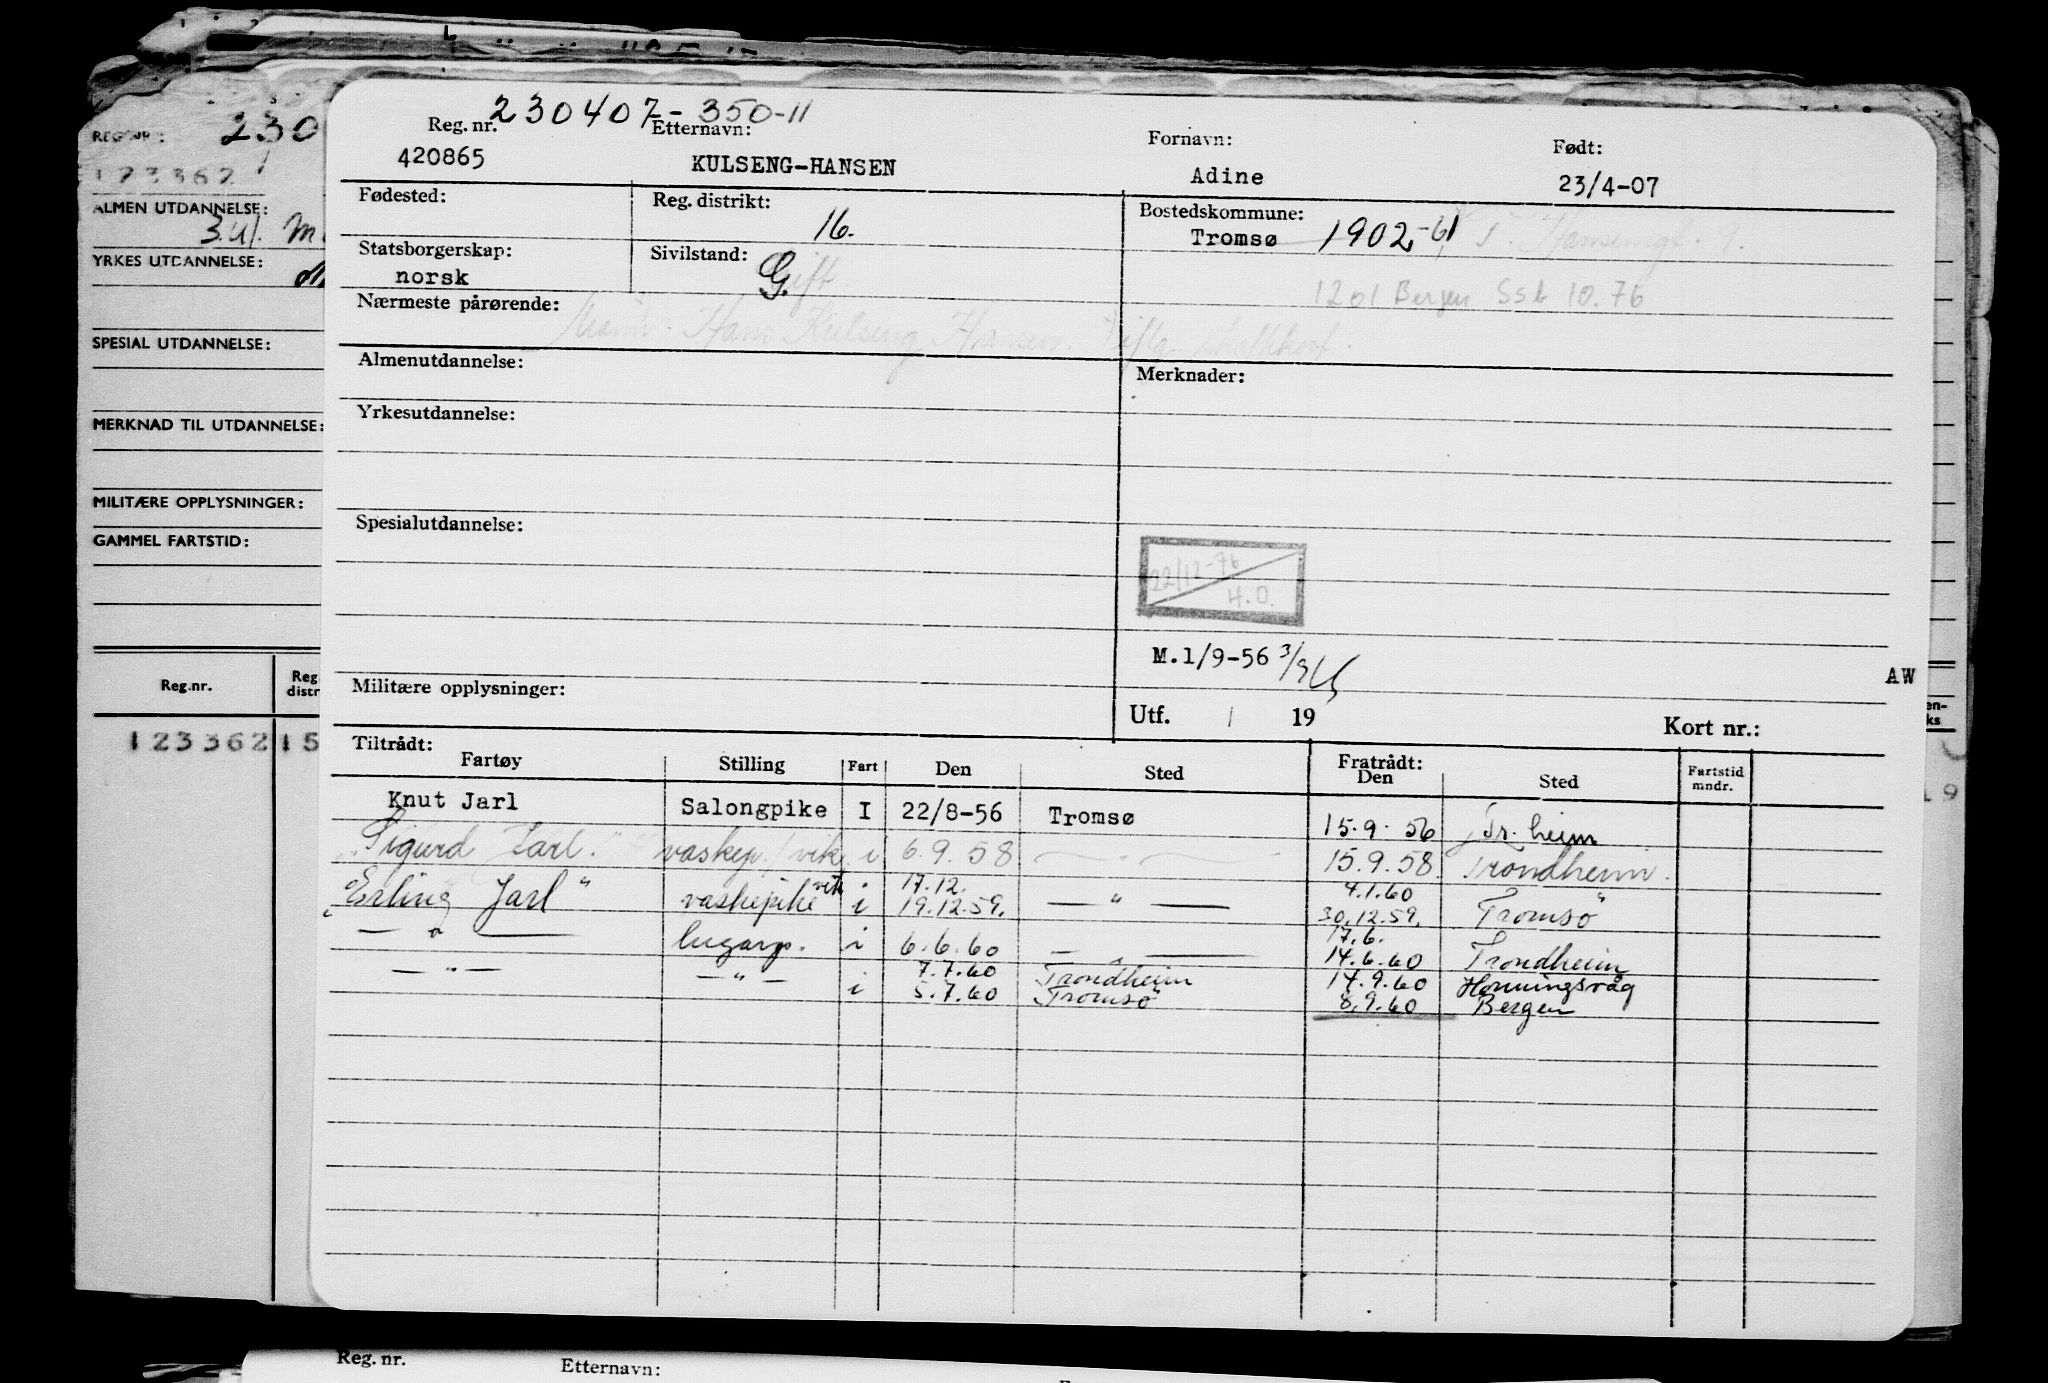 230407-350-11
Reg. nr. Etternavn: Fornavn: Født:
420865 KULSENG-HANSEN Adine 23/4-07
Fødested: Reg. distrikt: 16. Bostedskommune: Tromsø 1902,-61
Statsborgerskap: norsk Sivilstand: G. Gift
1201 Bergen Ssb 10.76
Nærmeste pårørende: Mann: Hans Kulseng Hansen.
Almenutdannelse: Merknader:
Yrkesutdannelse:
Spesialutdannelse:
22/12-76
H.O.
M.1/9-56
AW
Militære opplysninger:
Utf. / 19 Kort nr.:
Tiltrådt: Fratrådt:
Fartøy Stilling Fart Den Sted Den Sted Fartstid mndr.
Knut Jarl Salongpike I 22/8-56 Tromsø 15.9.56 Tr.heim
"Sigurd Jarl." vaskep./vik. i 6.9.58 — " — 15.9.58 Trondheim.
17.12. 4.1.60 "
"Erling Jarl" vaskepike vik i 19.12.59. — " — 30.12.59. Tromsø
17.6.
— " — lugarp. i 6.6.60 — " — 14.6.60 Trondheim
7.7.60 Trondheim 14.9.60 Honningsvåg
— " — — " — i 5.7.60 Tromsø 8.9.60 Bergen
REG.NR.: 230
123362
ALMEN UTDANNELSE:
YRKES UTDANNELSE:
SPESIAL UTDANNELSE:
MERKNAD TIL UTDANNELSE:
MILITÆRE OPPLYSNINGER:
GAMMEL FARTSTID:
Reg.nr. Reg. distr
123362 15
en-
ks
19
Reg. nr. Etternavn: